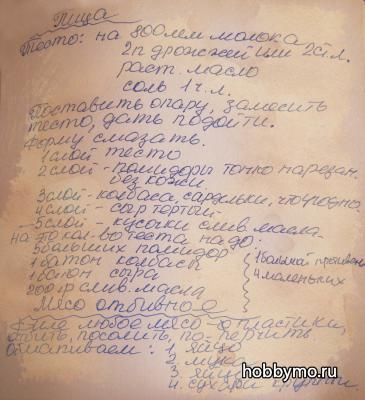 Пица
Тесто: на 800 млем молока
2п дрожжей или 2ст.л.
раст. масло
соль 1 ч.л.
Поставить опару, замесить
тесто, дать подойти.
Форму смазать.
1 слой тесто
2 слой - помидоры тонко нарезан.
без кожи.
3 слой - колбаса, сардельки, что угодно.
4 слой - сыр тертый
5 слой - кусочки слив. масла
на то кол-во теста надо:
5 больших помидор
1 батон колбасы
1 батон сыра
200 гр слив. масла
1 большой противень
4 маленьких
Мясо отбивное
Филе любое мясо - пластики,
отбить, посолить, поперчить.
Обмакиваем: 1. яйцо
2. мука
3. яйцо
4. сухари
hobbymo.ru